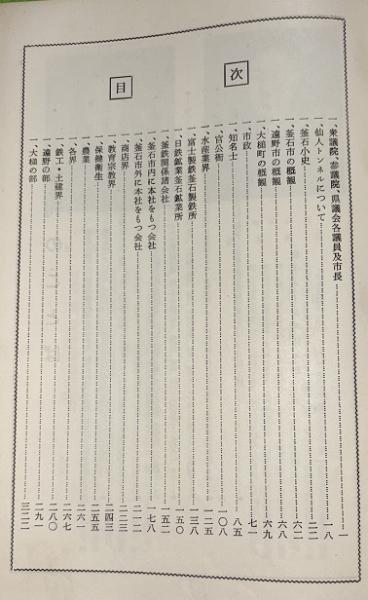 目次
一、衆議院、参議院、県議会各議員及市長……一
一、仙人トンネルについて……一八
一、釜石小史……二二
一、釜石市の概観……六二
一、遠野市の概観……六八
一、大槌町の概観……六九
一、市政……七一
一、知名士……八五
一、官公衙……一〇八
一、水産業界……一二五
一、富士製鉄釜石製鉄所……一三八
一、日鉄鉱業釜石鉱業所……一五〇
一、釜鉄関係諸会社……一五二
一、釜石市内に本社をもつ会社……一七八
一、釜石市外に本社をもつ会社……二一二
一、商店界……二二三
一、教育宗教界……二四三
一、保健衛生……二五五
一、農業……二六一
一、各界……二六七
一、鉄工・土建界……二八〇
一、遠野の部……二九一
一、大槌の部……三二二